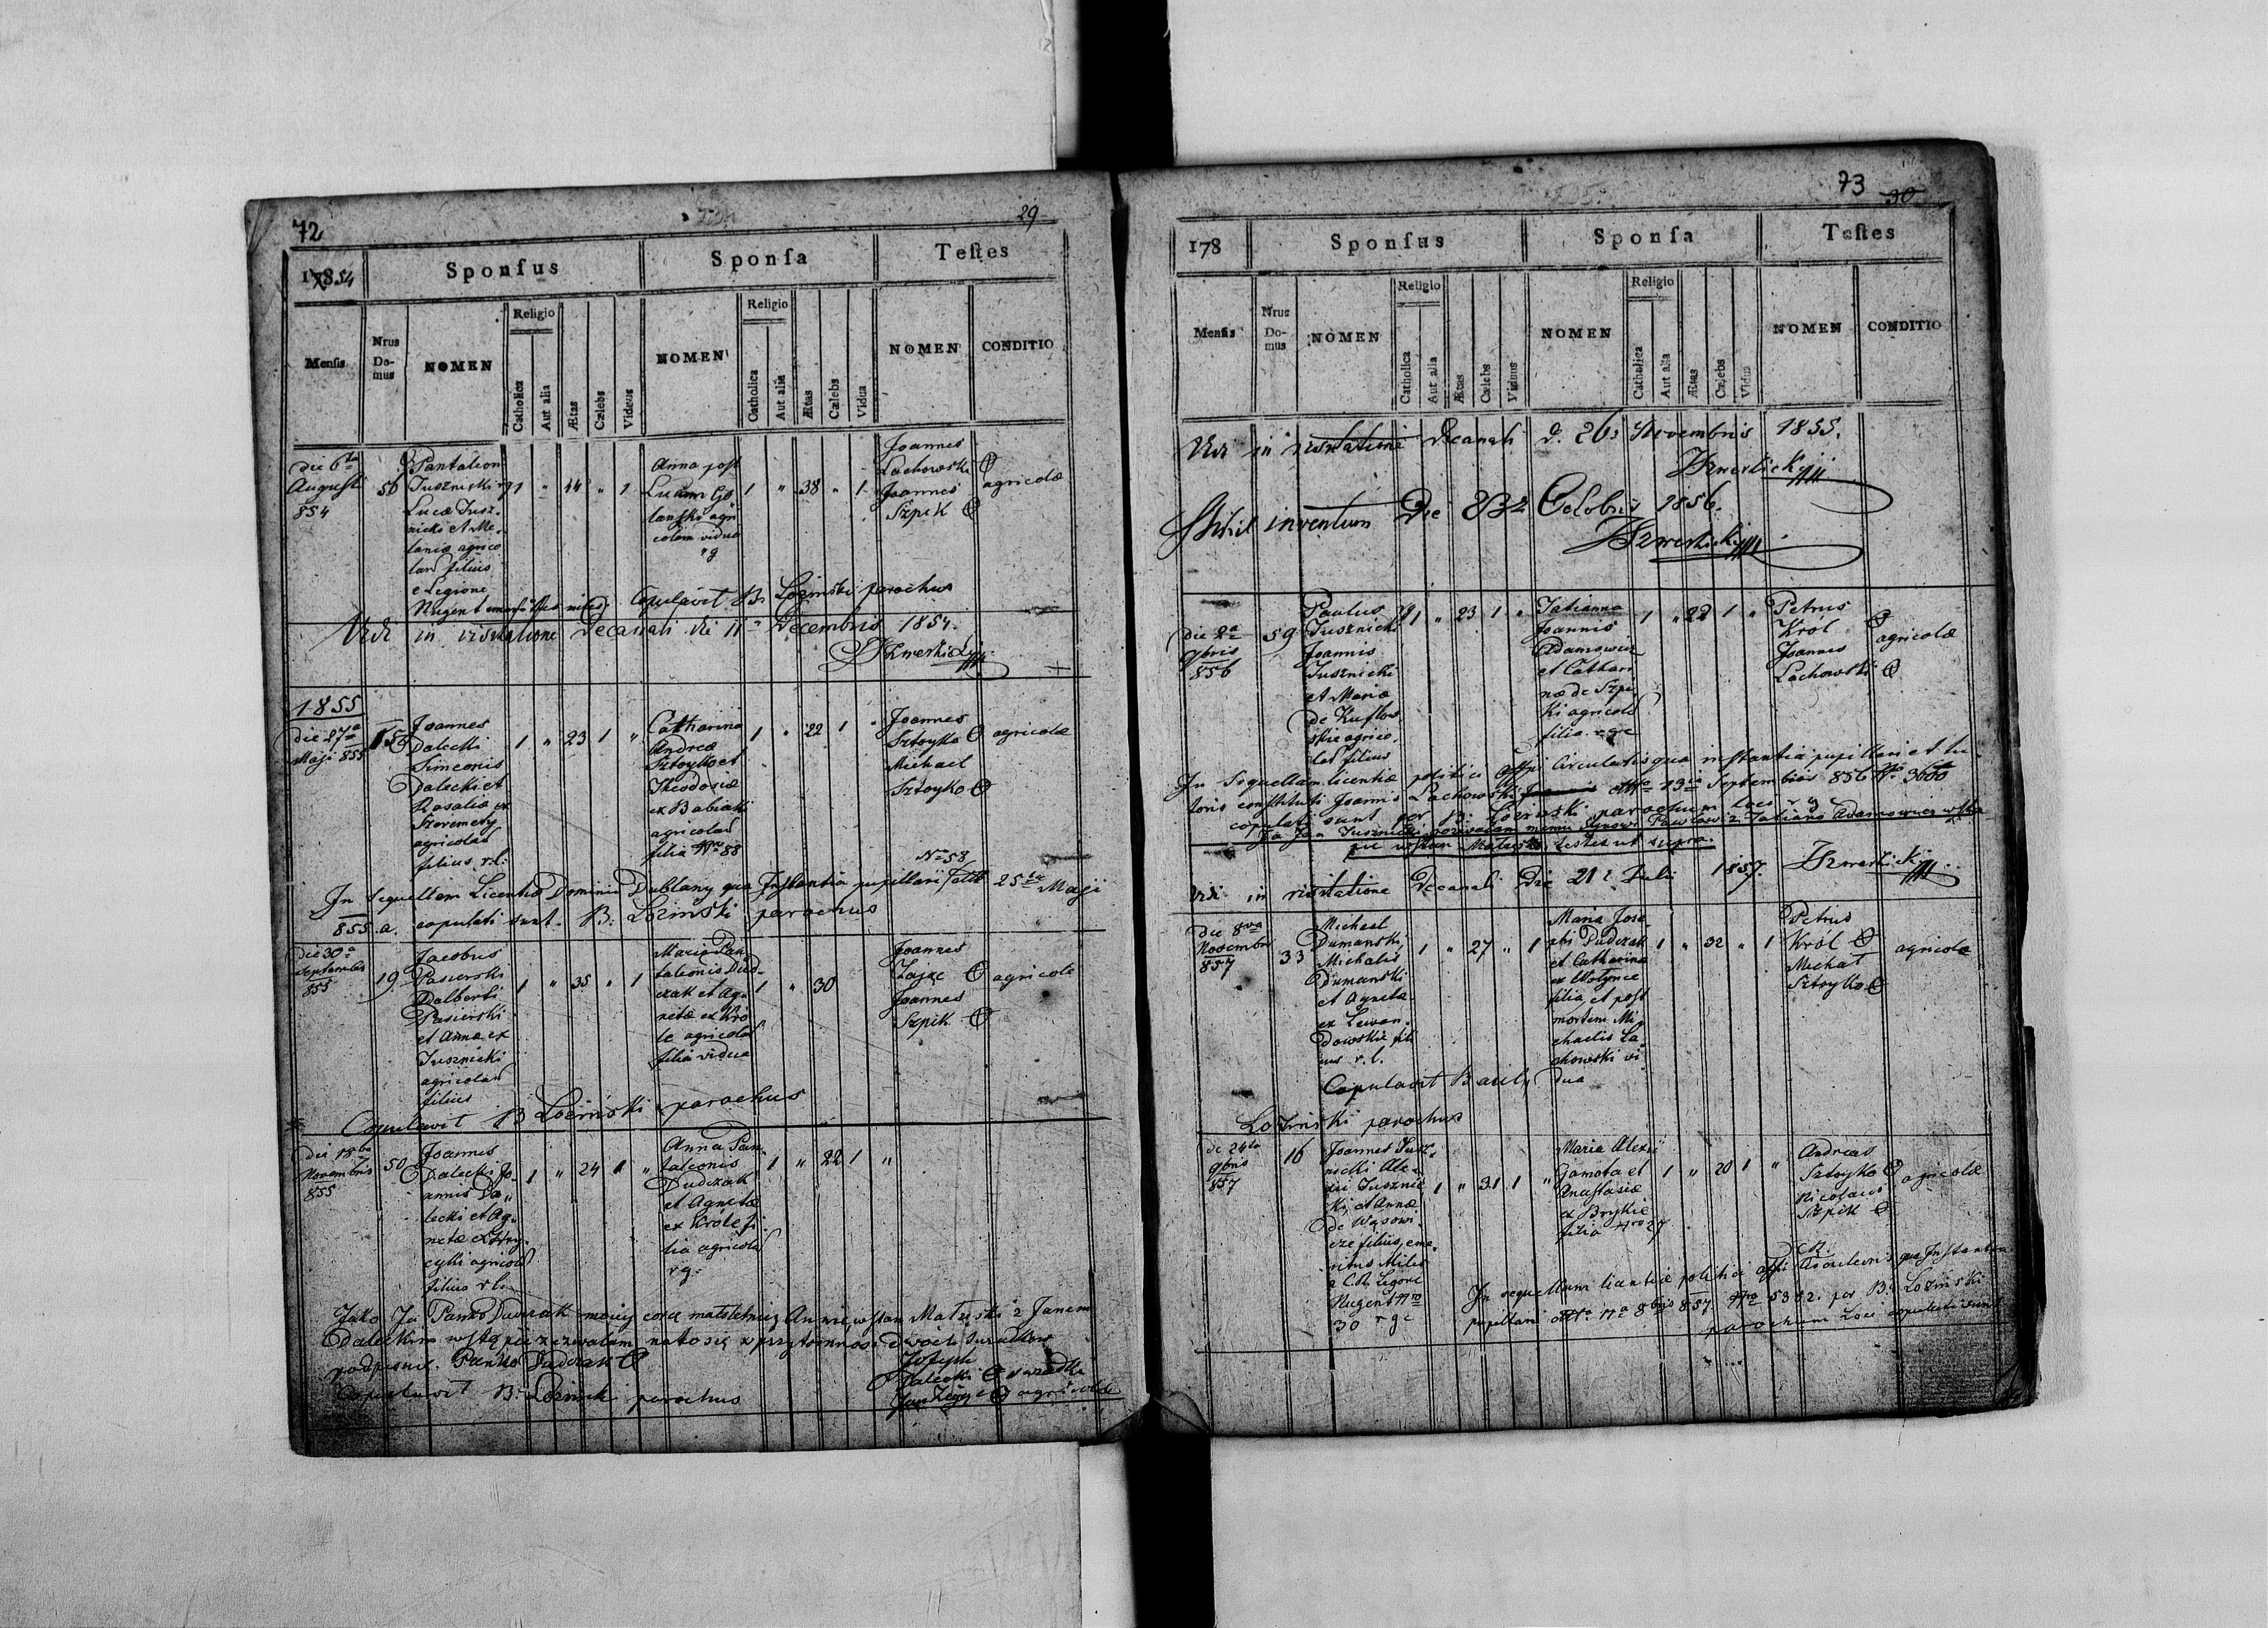 72
29
17854
Sponsus
Sponsa
Testes
Mensis
Nrus Domus
NOMEN
Religio
Catholica
Aut alia
Ætas
Cælebs
Viduus
NOMEN
Religio
Catholica
Aut alia
Ætas
Cælebs
Vidua
NOMEN
CONDITIO
die 6ta
Augusti
854
56
Pantaleon
Jusznicki rg
Lucæ Jusz-
nicki et Me-
lania agrico
larum filius
e Legione
Nugent
1 " 44 " 1
Anna post
Lucam
agri
colam vidua
rg
1 " 38 " 1
Joannes
Lachowski
Joannes
Szpik
agricolæ
Copulavit B. Łoziński parochus
Vidi in visitatione Decanali die 11a Decembris 1854.
1855
die 27a
Maji 855
15
Joannes
Dalecki
Simeonis
Dalecki et
Rosaliæ ex
Szeremety
agricolarum
filius r.l.
1 " 23 1 "
Catharina
Andreæ
Sztoyko et
Theodosiæ
ex Babiaki
agricolarum
filia Nro 88
1 " 22 1 "
Joannes
Sztoyko
Michael
Sztoyko
agricolæ
No 58
In sequellam Licentiæ Dominii Dublany qua Instantia pupillari 25ta Maji
855 a. copulati sunt. B. Łoziński parochus
die 30a
Septembris
855
19
Jacobus
Pasierski
Adalberti
Pasierski
et Anna ex
Jusznicki
agricolarum
filius
1 " 35 " 1
Maria Pan
taleonis Dud-
czak et Ag-
netæ ex Kró
le agricolarum
filia vidua
1 " 30
Joannes
Zając
Joannes
Szpik
agricolæ
Copulavit B Łoziński parochus
die 18va
Novembris
855
50
Joannes
Dalecki Jo-
annis Da-
lecki et Ag-
netæ ex Hry-
cylki agricolarum
filius r.l.
1 " 24 1 "
Anna Pan-
taleonis
Dudczak
et Agnetæ
ex Króle fi-
lia agricolarum
rg.
1 " 22 1 "
Jako Ja Panko Dudczak mojej corce małoletniej Annie, w stan Małżeński z Janem
Daleckim wstąpić zezwalam na to się w przytomnosci dwóch swiadków
podpisuie. Panko Dudczak
Joseph
Dalecki
Jan Zając agricolæ
Copulavit B. Łoziński parochus
73
30
178
Sponsus
Sponsa
Testes
Mensis
Nrus Domus
NOMEN
Religio
Catholica
Aut alia
Ætas
Cælebs
Viduus
NOMEN
Religio
Catholica
Aut alia
Ætas
Cælebs
Vidua
NOMEN
CONDITIO
Vidi in visitatione Decanali d. 26 Novembris 1855.
Nihil inventum Die 23a Octobris 1856.
die 2a
9bris
856
59
Paulus
Jusznicki
Joannis
Jusznicki
et Mariæ
de Kuflow
skie agrico-
lar filius
rg 1 " 23 1 "
Tatianna
Joannis
Adamowicz
et Cathari
næ de Szpi
ki agricolarum
filia rgc
1 " 22 1 "
Petrus
Król
Joannes
Lachowski
agricolæ
In Sequellam licentiæ politici Offi Circularis qua instantia pupillari et tu-
toris constituti Joannis Lachowski 23ia Septembris 856 No 3660
copulati sunt per B: Łoziński parochum loci rg
Ja Jan Jusznicki pozwalam memu Synowi Pawłowi z Tatianą Adamowicz wstą
pić w stan Małżeński testes ut supra.
Vidi in visitatione Decanali Die 21a Julii 1857.
die 8va
Novembris
857
33
Michael
Dumanski
Michalis
Dumanski
et Agneta
ex Lewan-
dowskie fili
us r.l.
1 " 27 " 1
Maria Jose
phi Dudczak
et Catharina
ex Wołynce
filia et post
mortem Mi-
chaelis La
chowski vi-
dua
1 " 32 " 1
Petrus
Król
Michał
Sztoyko
agricolæ
Copulavit Basily
Łoziński parochus
de 24ta
9bris
857
16
Joannes Jusz-
nicki Ale-
xii Jusznic
ki, et Annæ
de Wąsowi-
cze filius, eme-
ritus Miles
e C.R. Legione
Nugent Nro
30 rgc
1 " 31 1 "
Maria Alexii
Gamota et
Anastasiæ
ex Brykie
filia Nro 27
1 " 20 1 "
Andreas
Sztoyko
Nicolaus
Szpik
agricolæ
In sequellam licentiæ politici Offi Circularis qua Instantia
pupillari 17a 8bris 857 Nro 5382. per B. Łoziński
parochum Loci copulati sunt